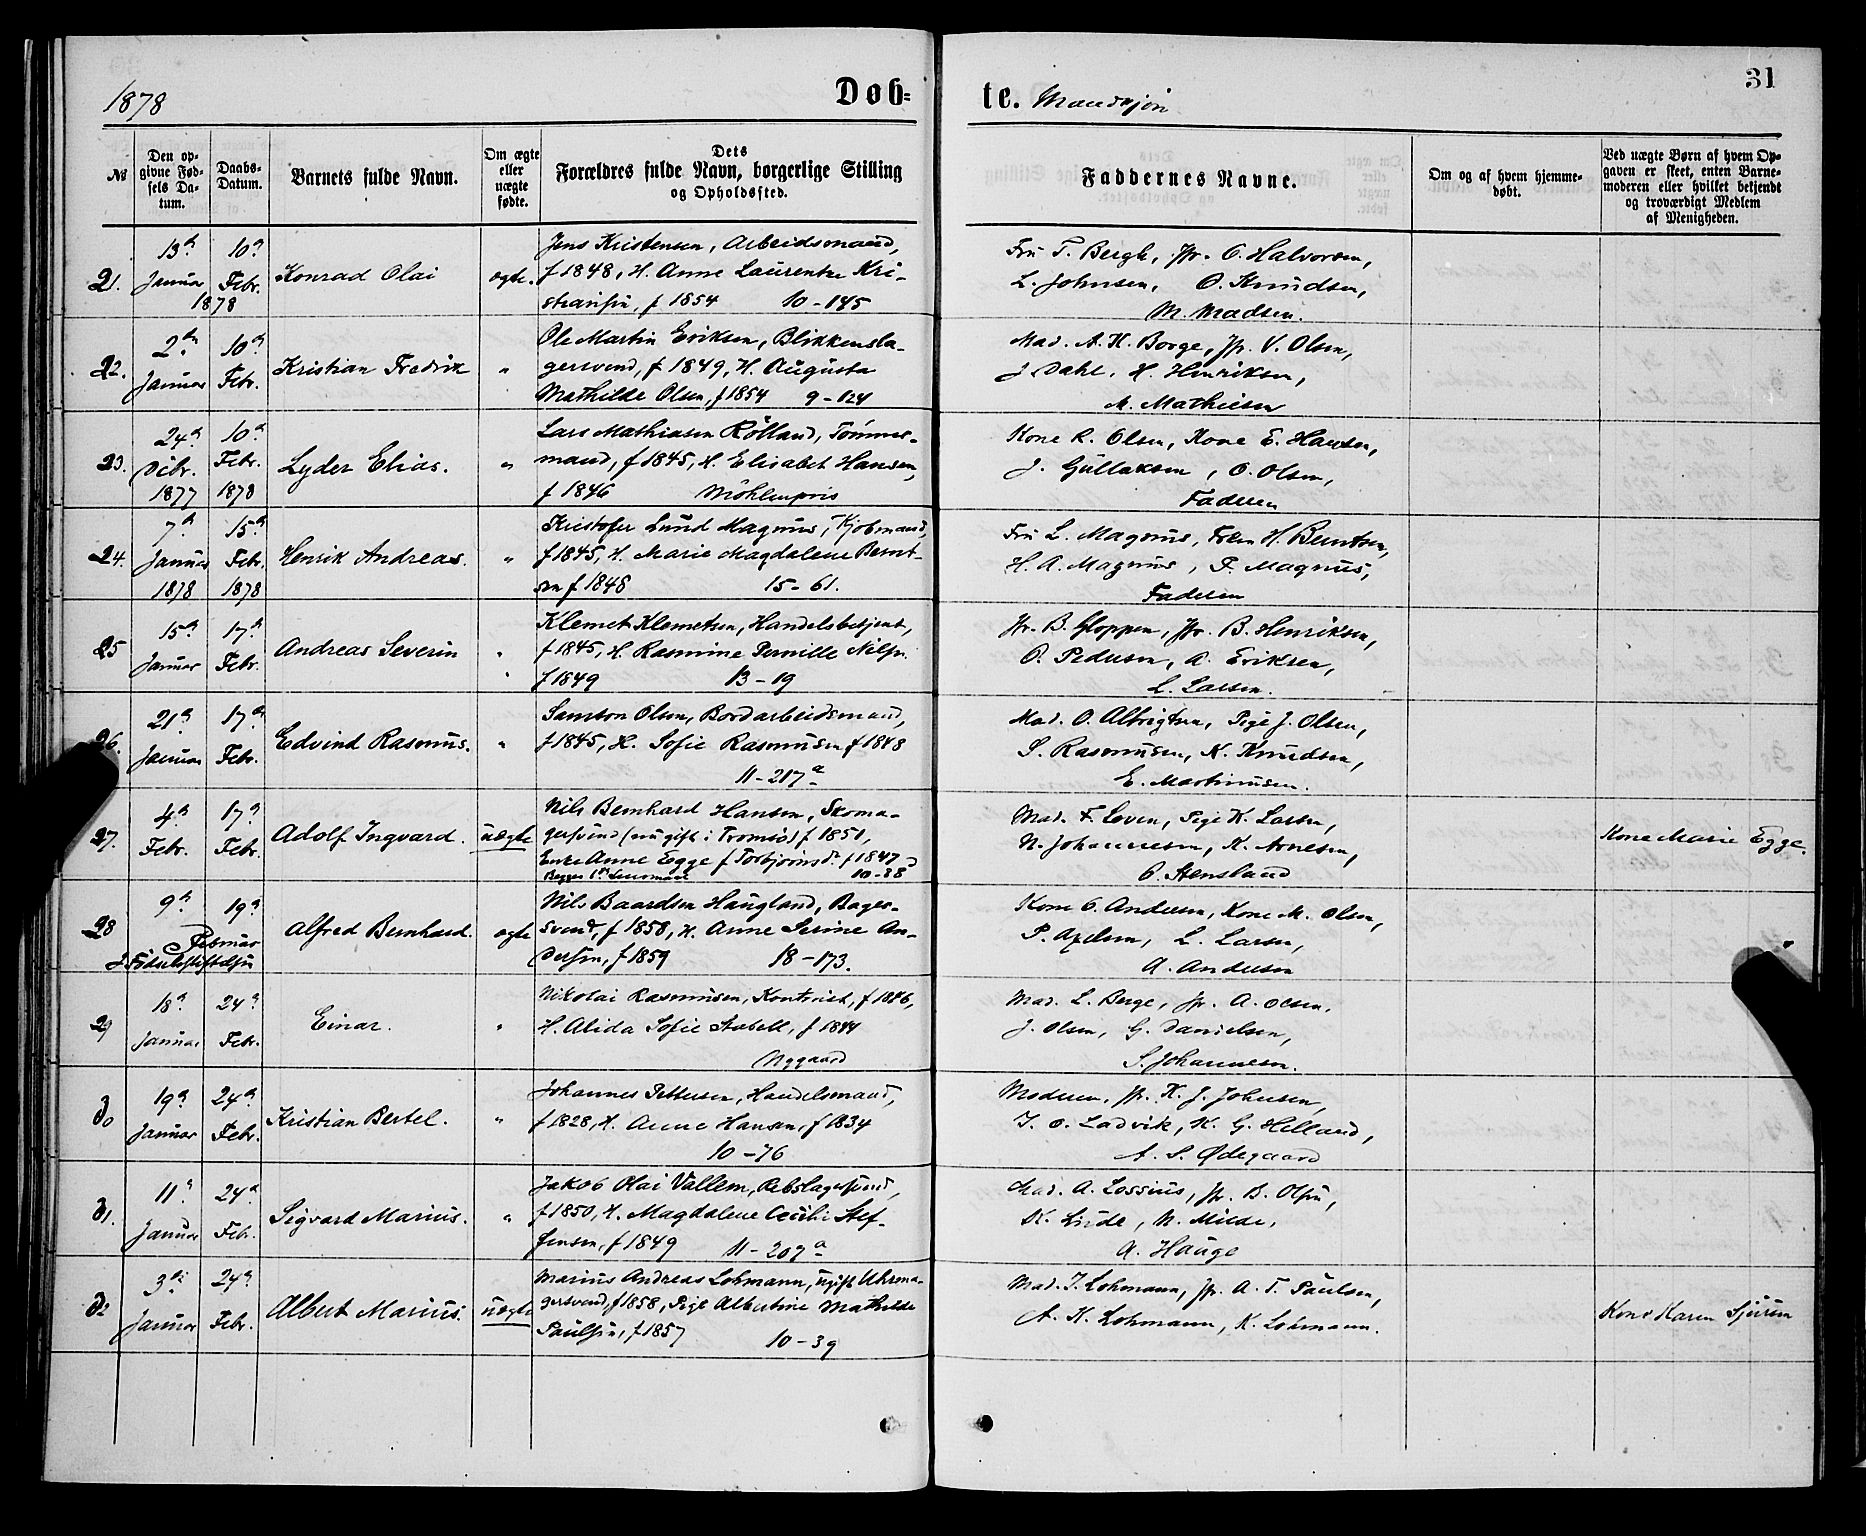 1878
Døb=
te. Mandkjøn
31
№
Den opgivne Fødsels Datum.
Daabs-Datum.
Barnets fulde Navn.
Om ægte eller uægte fødte.
Dets Forældres fulde Navn, borgerlige Stilling og Opholdssted.
Faddernes Navne.
Om og af hvem hjemmedøbt.
Ved uægte Børn af hvem Opgaven er skeet, enten Barnemoderen eller hvilket bekjendt og troværdigt Medlem af Menigheden.
21. 13 Januar 10 Febr. 1878 Konrad Olai ægte.
Jens Kristensen, Arbeidsmand,
f 1848, H. Anne Laurentze Kri-
stiansen, f 1854 10-145
Fru T. Bergh, Jfr. O. Halvorsen,
L. Johnsen, O. Knudsen,
M. Madsen.
22. 2 Januar 10 Febr. Kristian Fredrik "
Ole Martin Eriksen, Blikkensla-
gersvend, f 1849, H. Augusta
Mathilde Olsen, f 1854 9-124
Mad. A. K. Borge, Jfr. V. Olsen,
J Dahl, H. Henriksen,
M. Mathiesen
23. 24 Debr. 1877 10 Febr. 1878 Lyder Elias. "
Lars Mathiasen Rölland, Tömmer-
mand, f 1845, H. Elisabet Hansen,
f 1846 Möhlenpris
Kone R. Olsen, Kone E. Hansen,
J. Gullaksen, O. Olsen,
Faderen
24. 7 Januar 1878 15 Febr. 1878 Henrik Andreas. "
Kristofer Lund Magnus, Kjöbmand,
f 1845, H. Marie Magdalene Bernt-
sen f 1848 15-61.
Fru L. Magnus, Frkn H. Berntsen,
H. A. Magnus, P. Magnus,
Faderen
25 15 Januar 17 Febr. Andreas Severin "
Klemet Klemetsen, Handelsbetjent,
f 1845, H. Rasmine Pernille Nilsen
f 1849 13-19
Jfr. B. Gloppen, Jfr. B. Henriksen,
O. Pedersen, A. Eriksen,
L. Larsen.
26. 21 Januar 17 Febr. Edvind Rasmus. "
Samson Olsen, Bordarbeidsmand,
f 1845, H. Sofie Rasmusen f 1848
11-217a
Mad. O. Albrigtsen, Pige J. Olsen,
S. Rasmusen, N. Knudsen,
E. Martinusen.
27. 4 Febr. 17 Febr. Adolf Ingvard. uægte
Nils Bernhard Hansen, Skoma-
gersvend (nu gift i Tromsö) f 1851,
Enke Anne Egge f Torbjörnsd. f 1847
Begges 1ste Leiermaal 10-38
Mad. F. Loven, Pige K. Larsen,
N. Johannesen, K. Arnesen,
O. Stensland
Kone Marie Egge.
28 9 19 Februar
I Födselsstiftelsen
Alfred Bernhard. ægte
Nils Baardsen Haugland, Bager-
svend, f 1858, H. Anne Serine An-
dersen, f 1859 18-173.
Kone O. Andersen, Kone M. Olsen,
P. Axelsen, L. Larsen,
A. Andersen
29 18 Januar 24 Febr. Einar. "
Nikolai Rasmusen, Kontorist, f 1846,
H. Alida Sofie Stabell, f 1844
Nygaard
Mad. L. Berge, Jfr. A. Olsen,
J. Olsen, G. Danielsen,
S. Johannesen.
30 19 Januar 24 Febr. Kristian Bertel. "
Johannes Pettersen, Handelsmand,
f 1828, H. Anne Hansen, f 1834
10-76
Moderen, Jfr. K. J. Johnsen,
J. O. Ladvik, K. G. Helland,
A. S. Ødegaard
31. 11 Januar 24 Febr. Sigvard Marius. "
Jakob Olai Vallem, Rebslagersvend,
f 1850, H. Magdalene Cecilie Stef-
fensen, f 1849 11-207a
Mad. A. Lossius, Jfr. B. Olsen,
K. Linde, N. Milde,
A. Hauge
32 3 Januar 24 Febr. Albert Marius. uægte
Marius Andreas Lohmann, ugift Uhrma-
gersvend, f 1858, Pige Albertine Mathilde
Paulsen, f 1857 10-39
Mad. J. Lohmann, Jfr. A. T. Paulsen,
A. K. Lohmann, K. Lohmann.
Kone Karen Sjursen